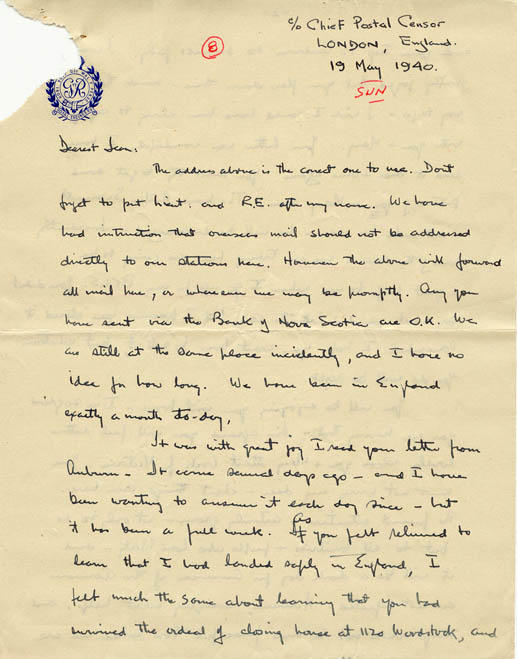 c/o Chief Postal Censor
LONDON, England.
8
19 May 1940.
SUN
Dearest Jean:
The address above is the correct one to use. Dont
forget to put Lieut. and R.E. after my name. We have
had instruction that overseas mail should not be addressed
directly to our stations here. However the above will forward
all mail here, or wherever we may be promptly. Any you
have sent via the Bank of Nova Scotia are O.K. We
are still at the same place incidently, and I have no
idea for how long. We have been in England
exactly a month to-day,
It was with great joy I read your letter from
Auburn. It came several days ago – and I have
been wanting to answer it each day since – but
it has been a full week. If as you felt relieved to
learn that I had landed safely in England, I
felt much the same about learning that you had
survived the ordeal of closing house at 1120 Woodstock, and